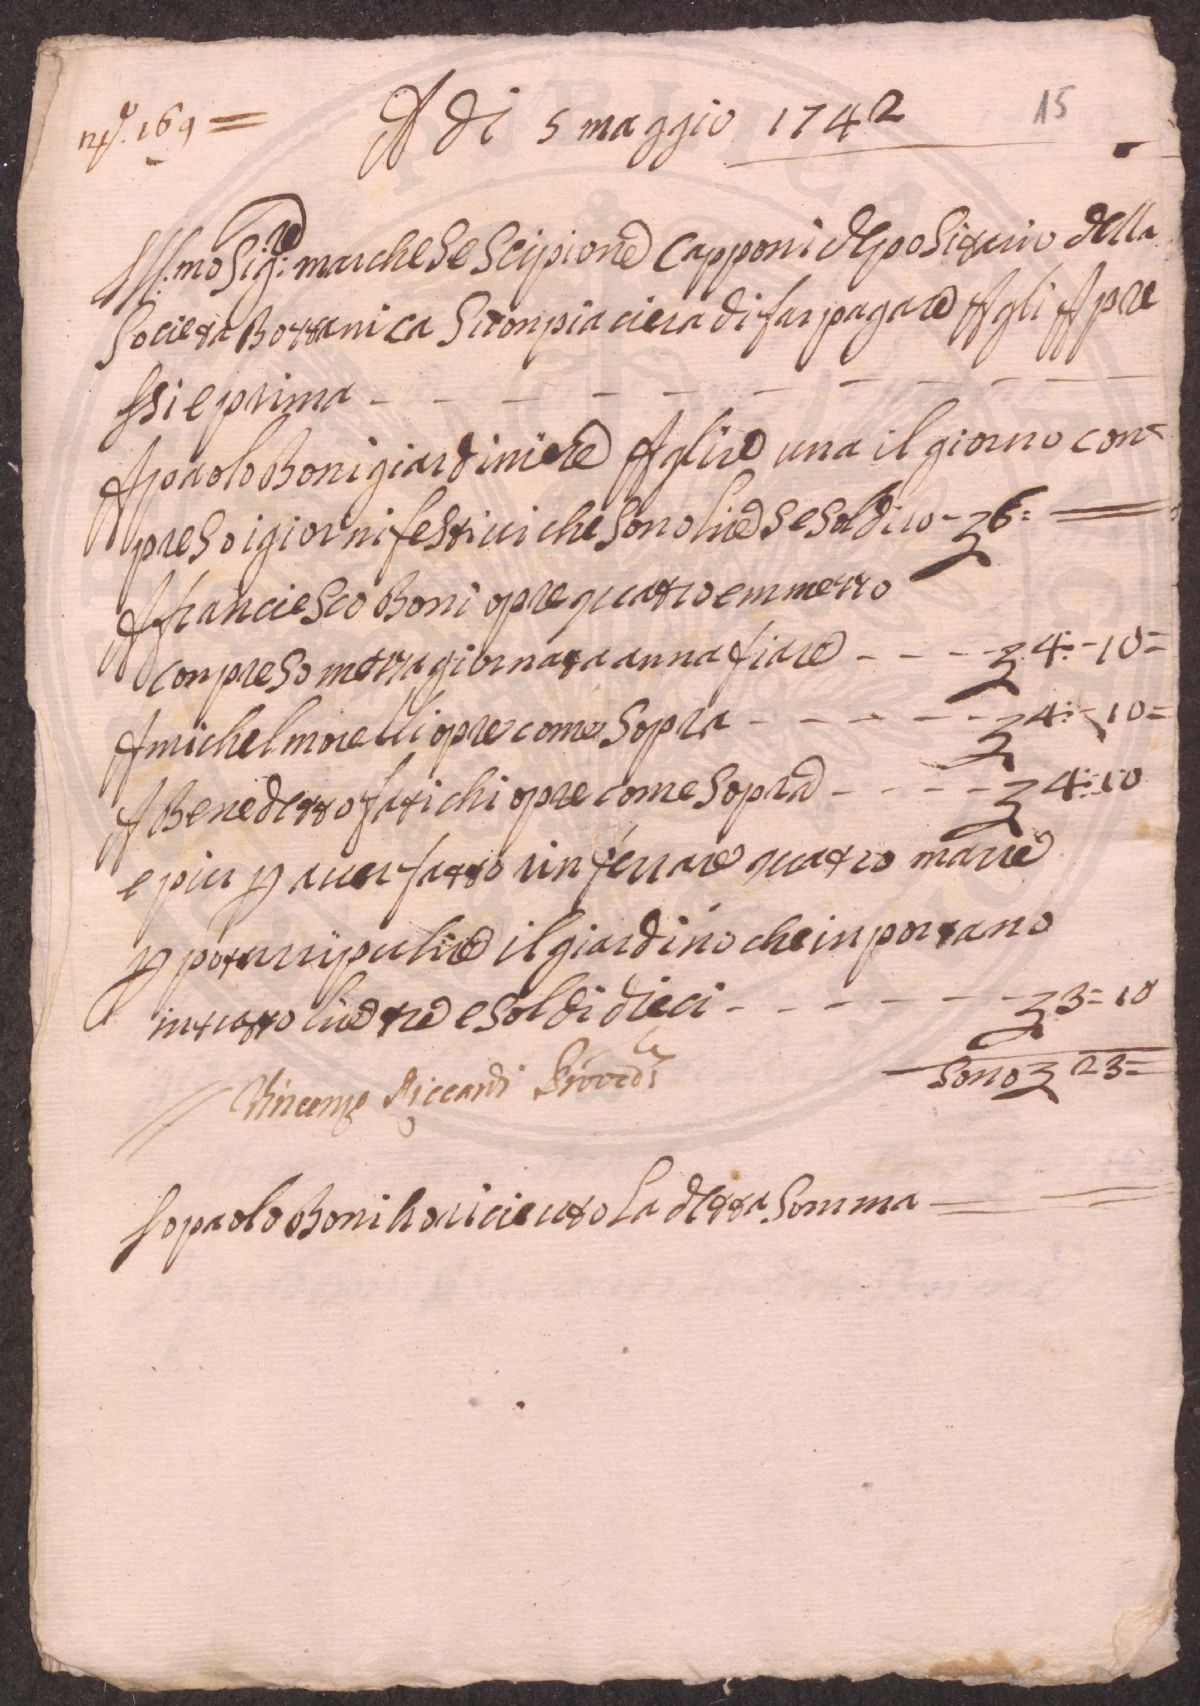 nº. 169 =
A di 5 maggio 1742
15
Ill.mo Sig:re marchese Scipione Capponi depositario della
Societa Bottanica Si conpiaciera di far pagare Agli Apre
ssi e prima
A paolo Boni giardiniere A lire una il giorno con
preso i giorni festiui che sono lire se soldi 10 - 6 =
A franciesco Boni opre quatro emmezzo
conpreso mezza giornata annafiare - - - - 4:-10=
A michel morelli opre come sopra - - - - - - 4:-10=
A Benedetto fatichi opre come sopra - - - - - 4:10
e piu p auer fatto rinferrare quatro marre
p poter ripulire il giardino che inportano
in tutto lire tre e soldi dieci - - - - - - 3=10
Sono 23=
Vincenzo Riccardi Proved.re
Io paolo Boni ho riceuto La detta Somma